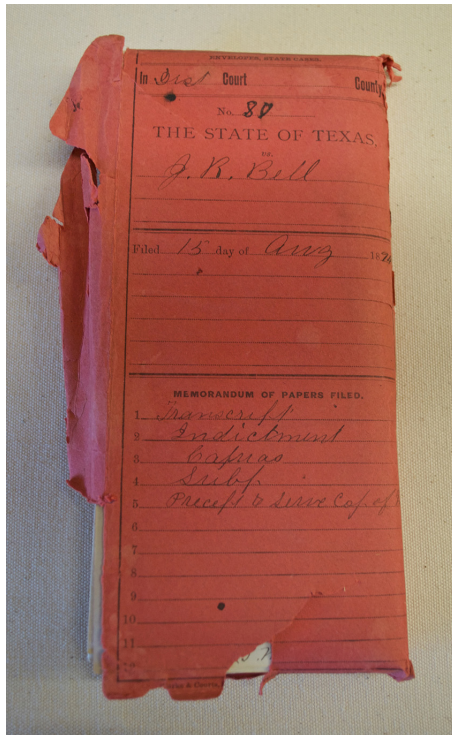 ENVELOPES, STATE CASES.
In Dist Court County
No. 80
THE STATE OF TEXAS,
vs.
J. R. Bell
Filed 15 day of Aug 187
MEMORANDUM OF PAPERS FILED.
1 Transcript
2 Indictment
3 Capias
4 Subp.
5 Precept to Serve Cop of
6
7
8
9
10
11